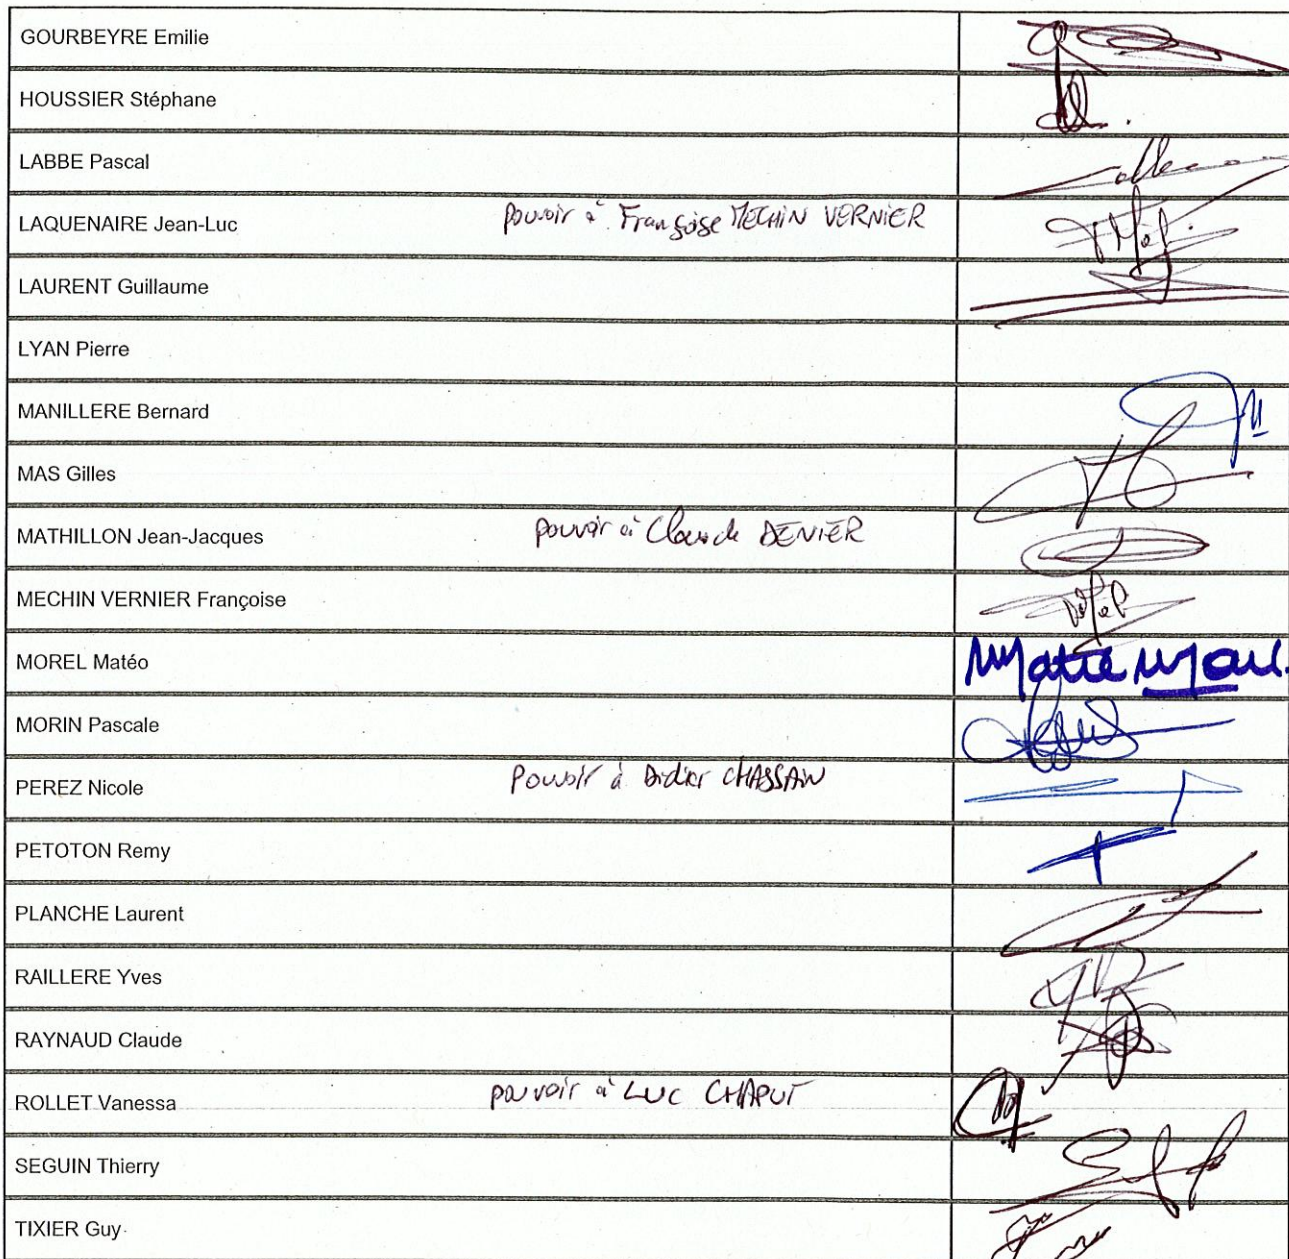 GOURBEYRE Emilie
HOUSSIER Stéphane
LABBE Pascal
LAQUENAIRE Jean-Luc pouvoir à Françoise MECHIN VERNIER
LAURENT Guillaume
LYAN Pierre
MANILLERE Bernard
MAS Gilles
MATHILLON Jean-Jacques pouvoir à Claude DENIER
MECHIN VERNIER Françoise
MOREL Matéo
MORIN Pascale
PEREZ Nicole Pouvoir à Didier CHASSAIN
PETOTON Remy
PLANCHE Laurent
RAILLERE Yves
RAYNAUD Claude
ROLLET Vanessa pouvoir à Luc CHAPUT
SEGUIN Thierry
TIXIER Guy